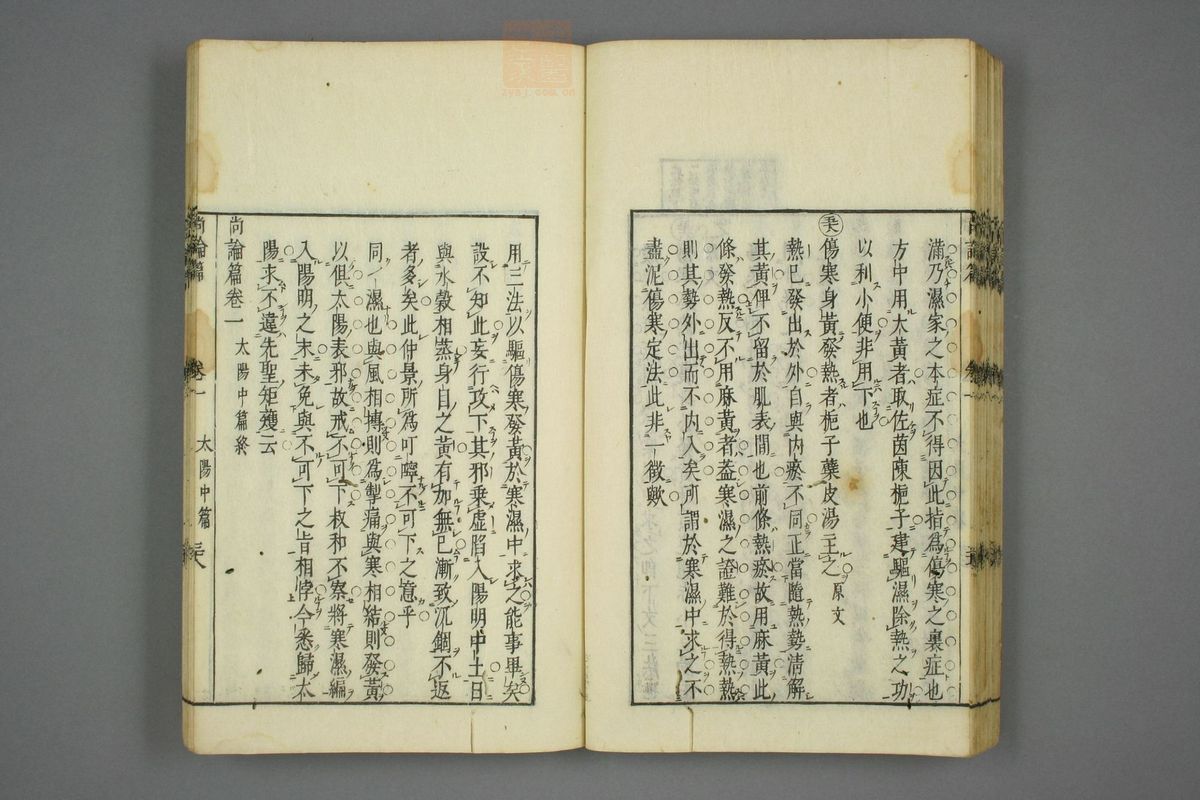 滿乃濕家之本症不得因此指為傷寒之裏症也
方中用大黃者取佐茵蔯梔子建驅濕除熱之功
以利小便非用下也
傷寒身黃發熱者梔子蘗皮湯主之 原文
熱已發出於外自與內瘀不同正當隨熱勢清解
其黃俾不留於肌表間也前條熱瘀故用麻黃此
條發熱反不用麻黃者蓋寒濕之證難於得熱熱
則其勢外出而不內入矣所謂於寒濕中求之不
盡泥傷寒定法此非一徵歟
用三法以驅傷寒發黃於寒濕中求之能事畢矣
設不知此妄行攻下其邪乘虛陷入陽明中土日
與水穀相蒸身目之黃有加無已漸致沉錮不返
者多矣此仲景所為叮嚀不可下之意乎
同一濕也與風相摶則為掣痛與寒相結則發黃
以俱太陽表邪故戒不可下叔和不察將寒濕編
入陽明之末未免與不可下之旨相悖今悉歸太
陽求不違先聖矩矱云
尚論篇卷一 太陽中篇終
尚論篇 卷一 太陽中篇